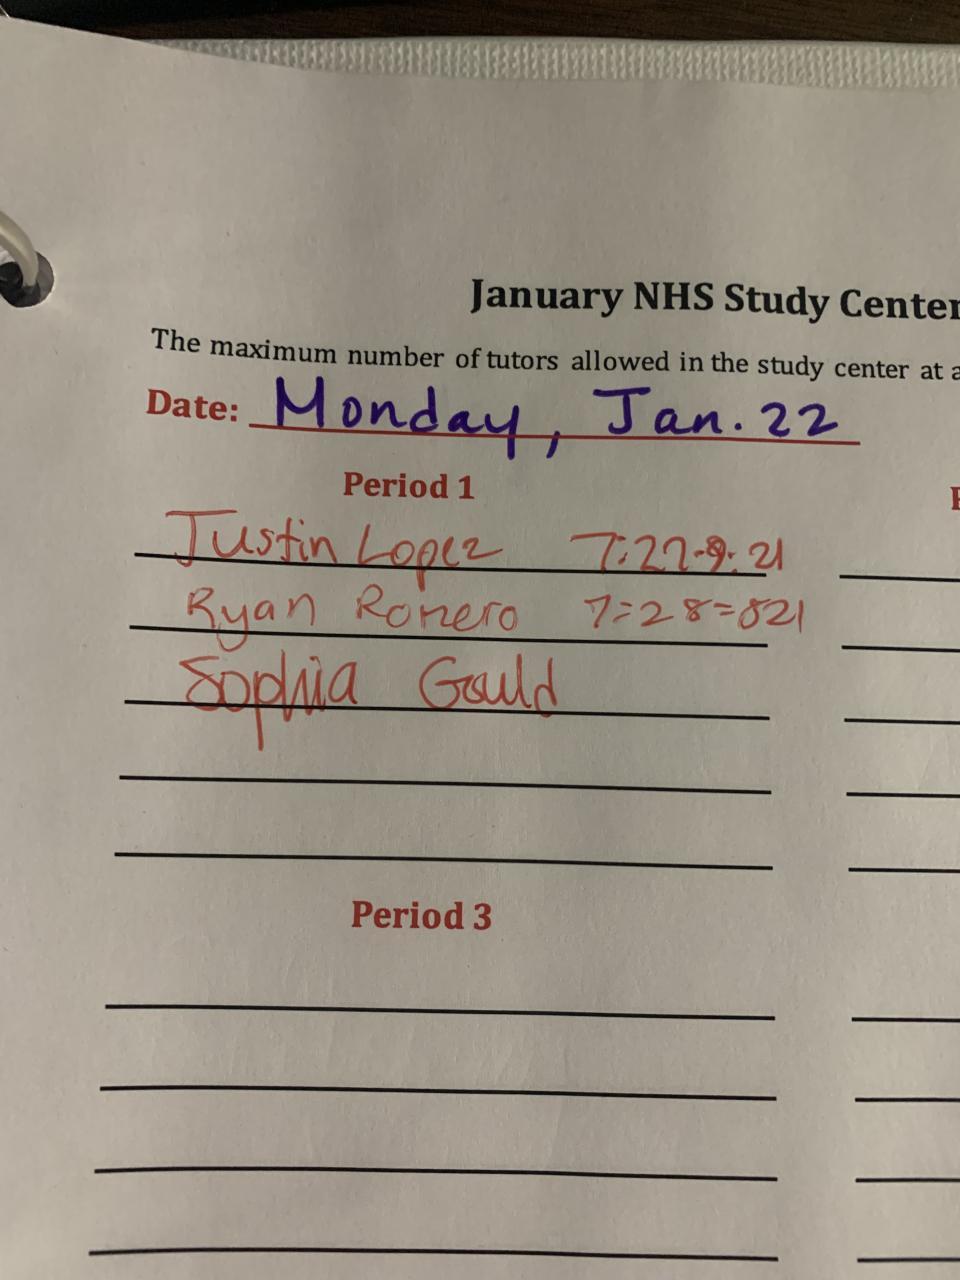 January NHS Study Center
The maximum number of tutors allowed in the study center at a
Date: Monday, Jan. 22
Period 1
Justin Lopez 7:27-9:21
Ryan Romero 7=28=821
Sophia Gould
Period 3